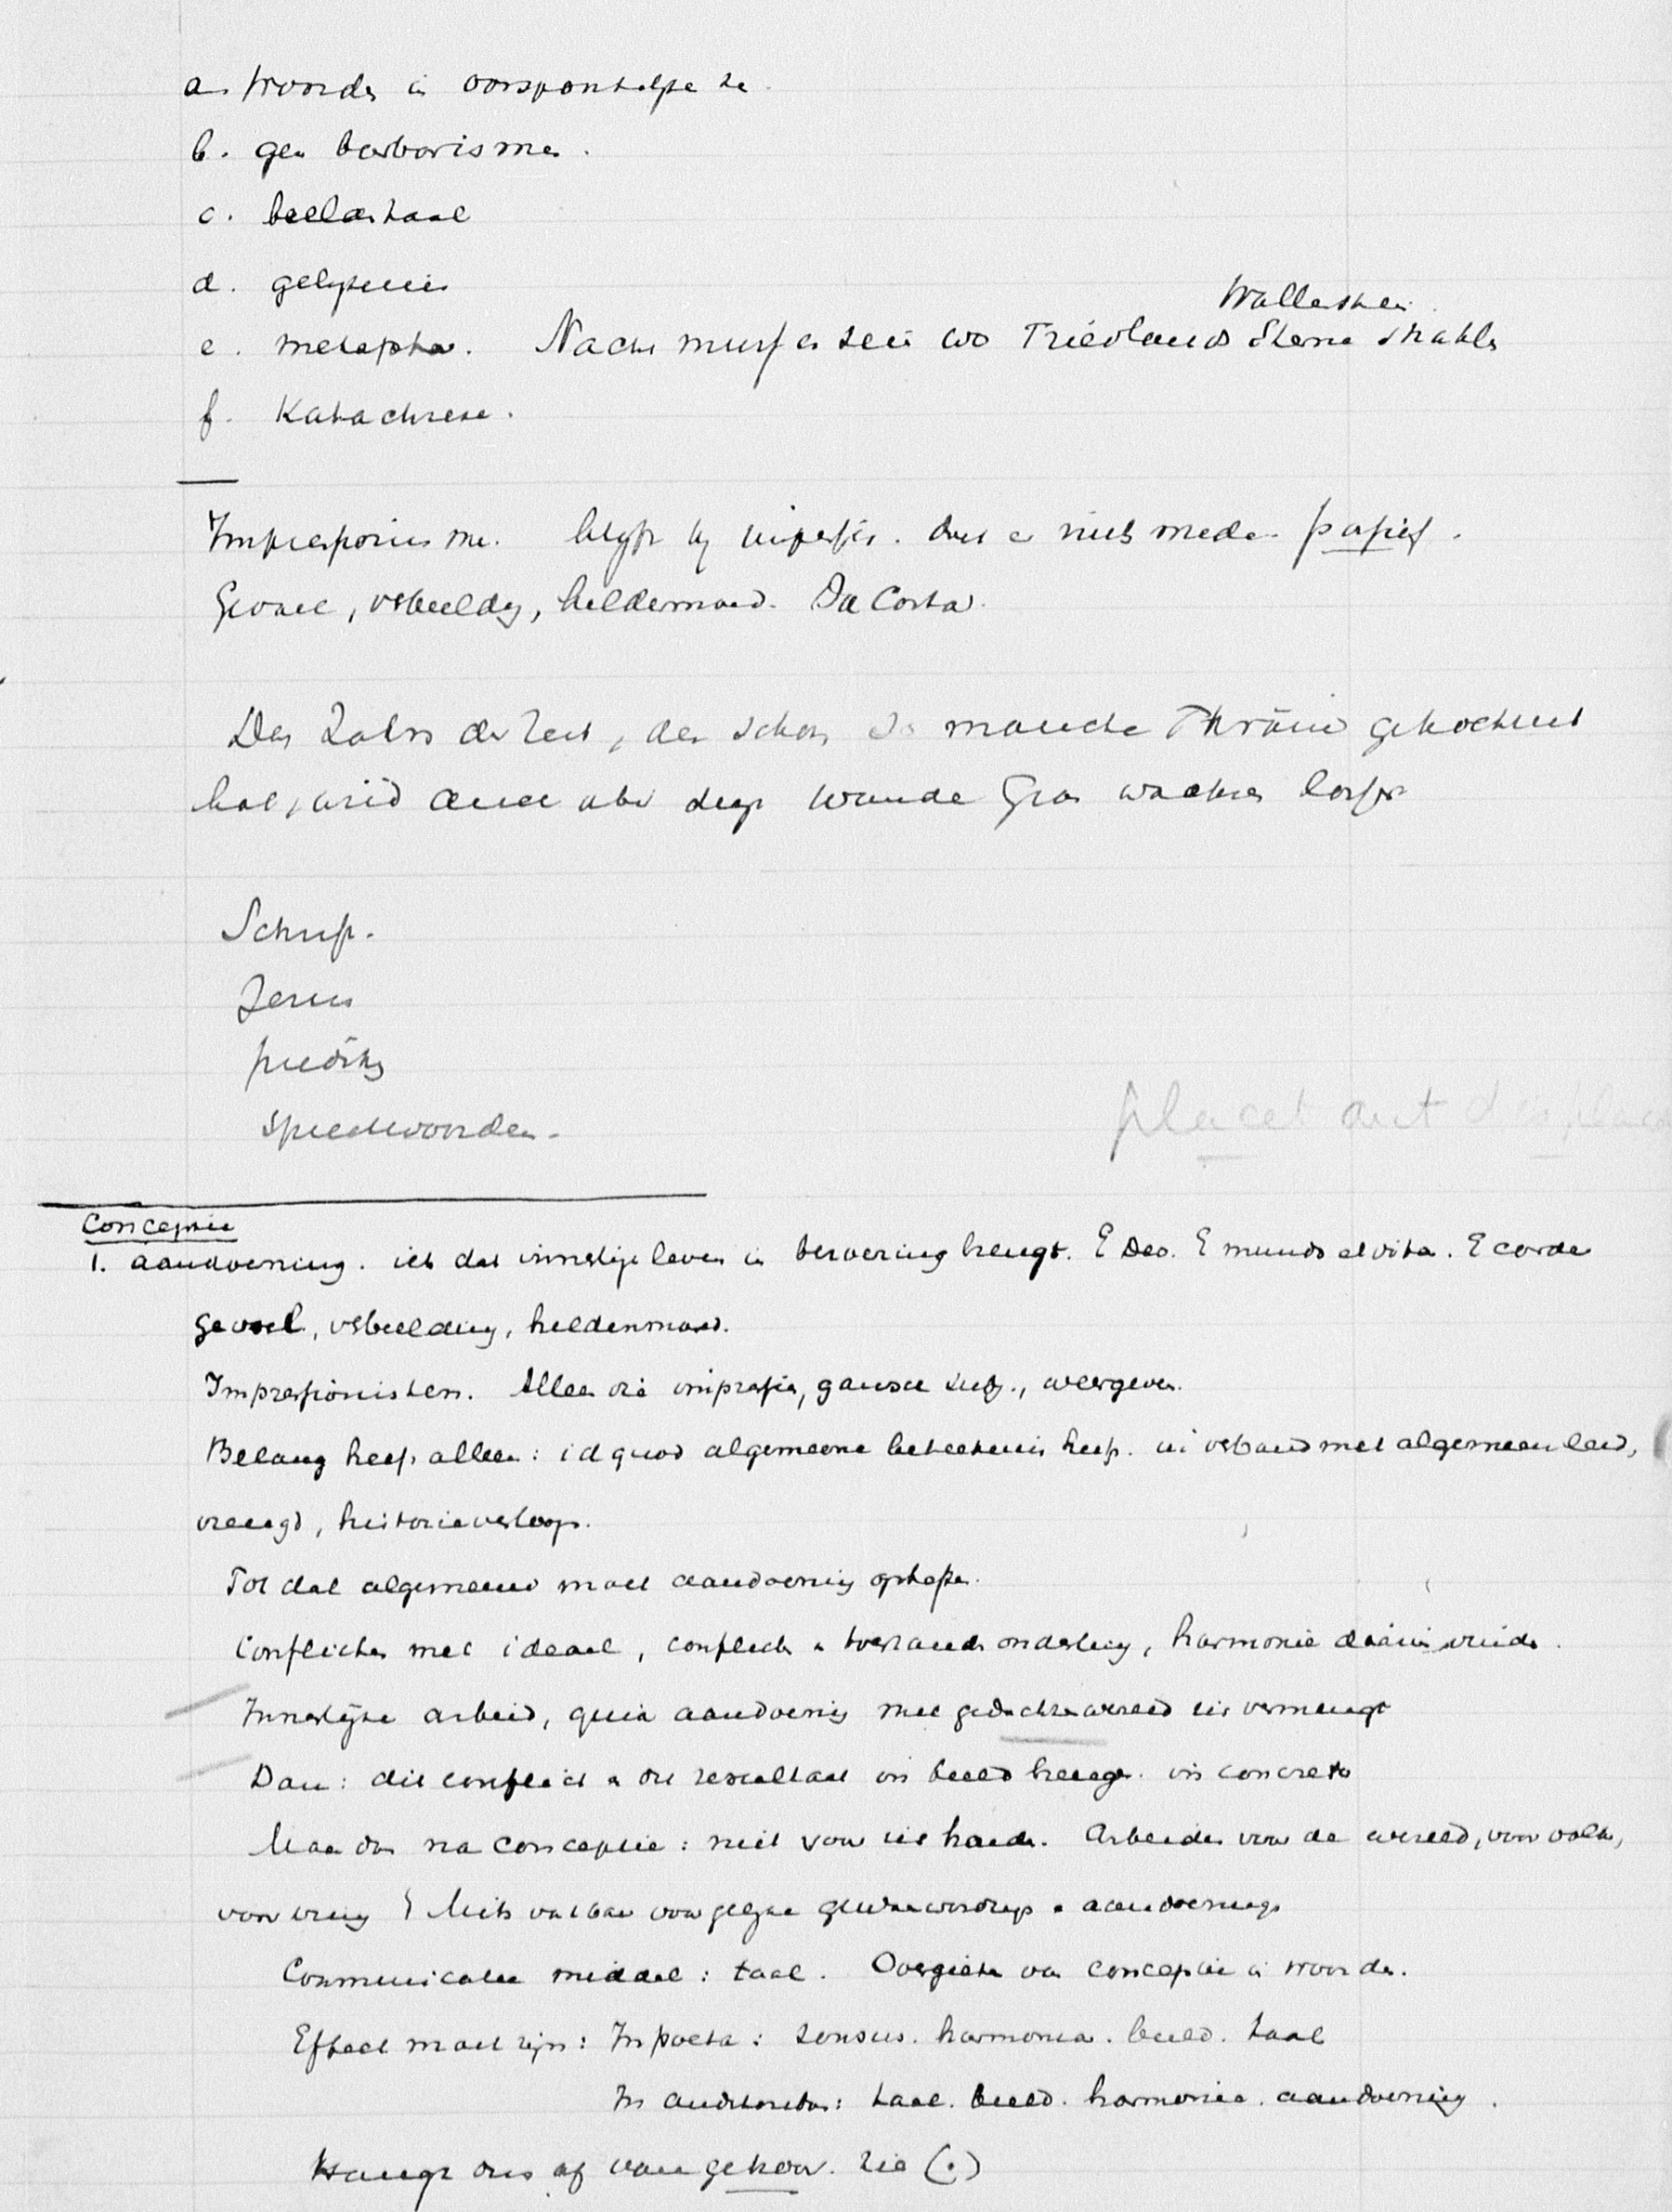 a. Woorden in oorspronkelijke
b. geen barbarismen.
c. beeldentaal
d. gelijkenis
Wallenstein.
e. metaphor. Nacht muss es sein wo Friedlands Sterne strahlen
f. Katachrese.
Impressionisme. blijft bij impressie. doet er niets mede. passief.
Gevoel, verbeelding, heldenmoed. Da Costa.
Der Zahn der Zeit, der schon so manche Thräne getrocknet
hat, wird auch über diese Wunde Gras wachsen lassen
Schrift.
Jezus
prediking
spreekwoorden.
placet aut displicet
Conceptie
1. aandoening. iets dat innerlijk leven in beroering brengt. E Deo. E mundo et vita. E corde
gevoel, verbeelding, heldenmoed.
Impressionisten. Alleen die impressie, weergeven.
Belang heeft alleen: id quod algemeene beteekenis heeft. in verband met algemeen leed,
vreugd, historieverloop.
Tot dat algemeene moet aandoening opklimmen.
Conflicten met ideaal, conflict toestanden onderling, harmonie daarin vinden.
Innerlijke arbeid, quia aandoening met gedachtenwereld is vermengt
Dan: dit conflict en dit resultaat in beeld brengen. in concreto
Maar dan na conceptie: niet voor uit handen. Arbeiden voor de wereld, van volk,
Communicatie middel: taal. Overgieten van conceptie in woorden.
Effect moet zijn: In poeta: sensus. harmonia. beeld. taal
In auditoribus: taal. beeld. harmonie. aandoening.
Hangt dus af van gehoor. Zie (.)